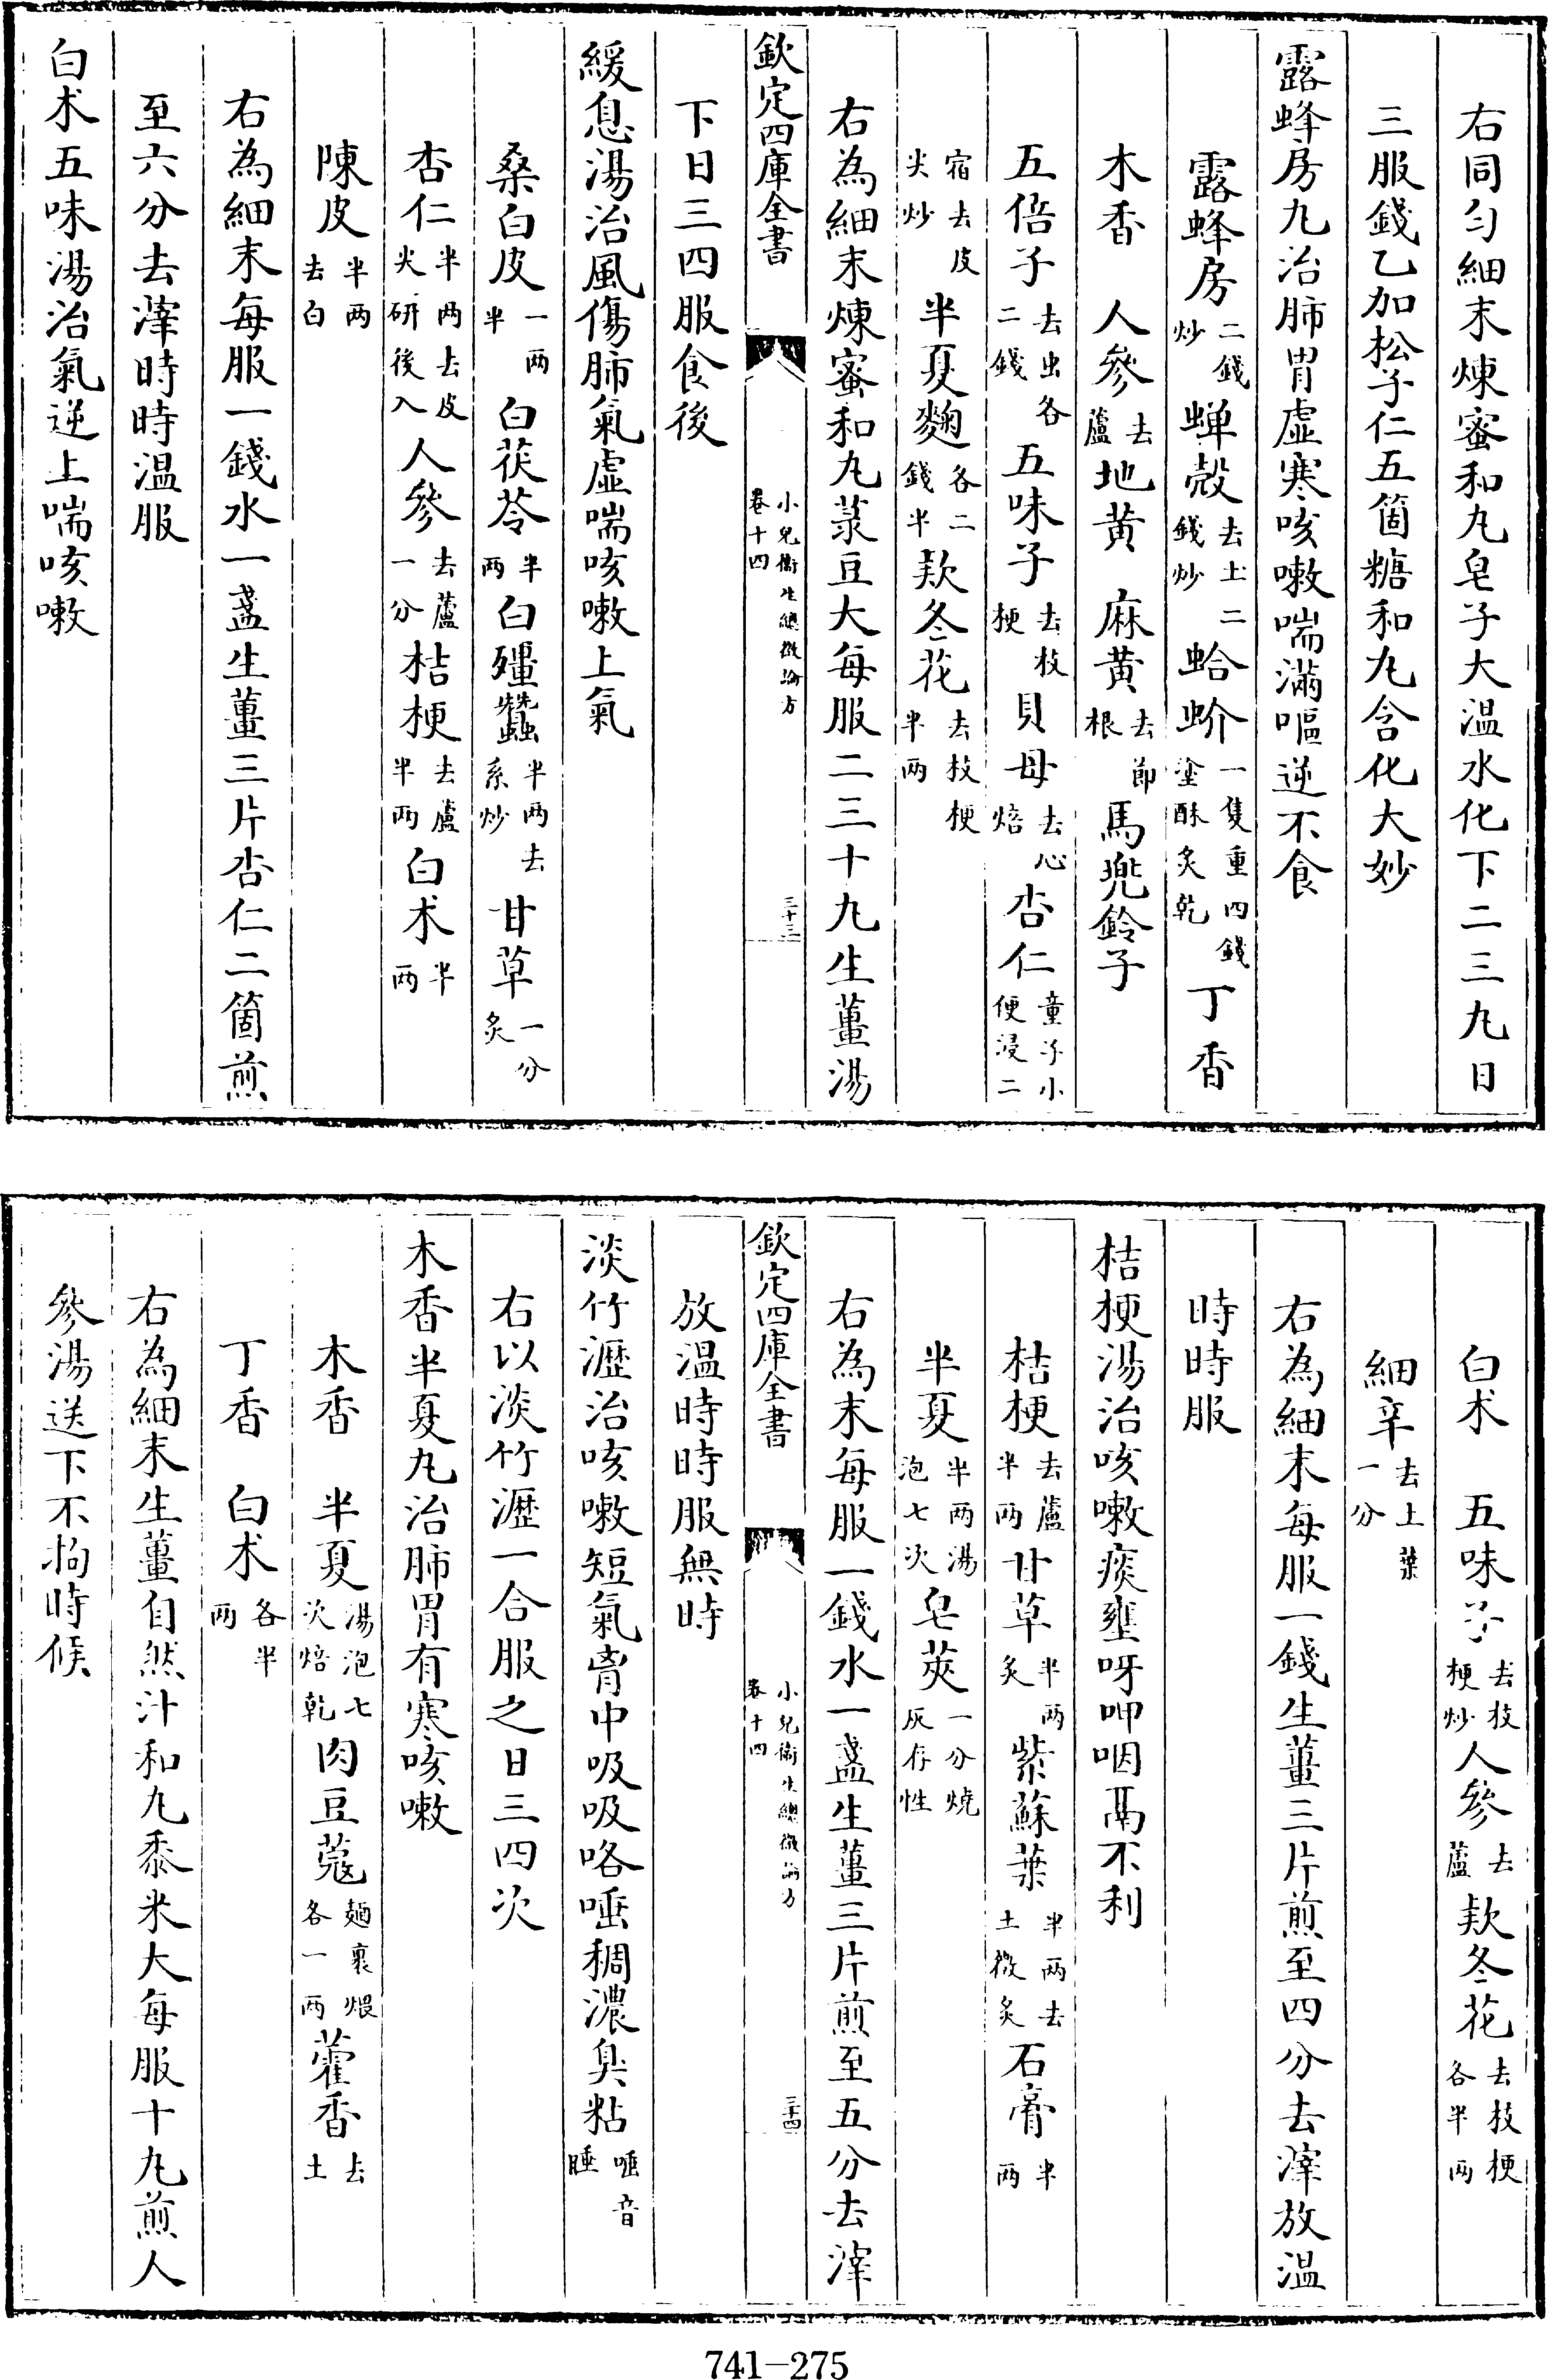 右同勻細末煉蜜和丸皂子大温水化下二三丸日
三服錢乙加松子仁五箇糖和丸含化大妙
露蜂房丸治肺胃虚寒咳嗽喘滿嘔逆不食
露蜂房二錢炒蟬殼去土二錢炒蛤蚧一隻重四錢塗酥炙乾丁香
木香 人參去蘆地黄 麻黄去節根馬兜鈴子
五倍子去虫各二錢五味子去枝梗貝母去心焙杏仁童子小便浸二
宿去皮尖炒半夏麯各二錢半款冬花去枝梗半两
右為細末煉蜜和丸菉豆大每服二三十丸生薑湯
欽定四庫全書 小兒衛生總微論方卷十四 三十三
下日三四服食後
緩息湯治風傷肺氣虚喘咳嗽上氣
桑白皮一两半白茯苓半两白殭蠶半两去系炒甘草一分炙
杏仁半两去皮尖研後入人參去蘆一分桔梗去蘆半两白术半两
陳皮半两去白
右為細末每服一錢水一盞生薑三片杏仁二箇煎
至六分去滓時時温服
白术五味湯治氣逆上喘咳嗽
白术 五味子去枝梗炒人參去蘆款冬花去枝梗各半两
細辛去上葉一分
右為細末每服一錢生薑三片煎至四分去滓放温
時時服
桔梗湯治咳嗽痰壅呀呷咽鬲不利
桔梗去蘆半两甘草半两炙紫蘇葉半两去土微炙石膏半两
半夏半两湯泡七次皂莢一分燒灰存性
右為末每服一錢水一盞生薑三片煎至五分去滓
欽定四庫全書 小兒衛生總微論方卷十四 三十四
放温時時服無時
淡竹瀝治咳嗽短氣胷中吸吸咯唾稠濃臭粘唾音睡
右以淡竹瀝一合服之日三四次
木香半夏丸治肺胃有寒咳嗽
木香 半夏湯泡七次焙乾肉豆蔻麵裹煨各一两藿香去土
丁香 白术各半两
右為細末生薑自然汁和丸黍米大每服十丸煎人
參湯送下不拘時候
741-275